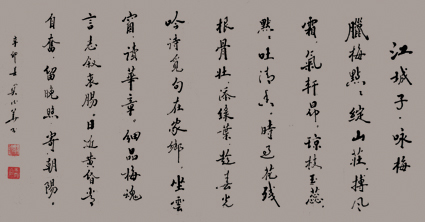 江城子·咏梅
臘梅點點綻山莊，搏風
霜，氣軒昂，瓊枝玉蕊，
點點吐清香，時過花殘
根骨壯，添綠葉，趁春光
吟詩覓句在家鄉，坐雲
窗，讀華章，細品梅魂
言志叙衷腸，日近黄昏當
自奮，留晚照，寄朝陽。
辛卯